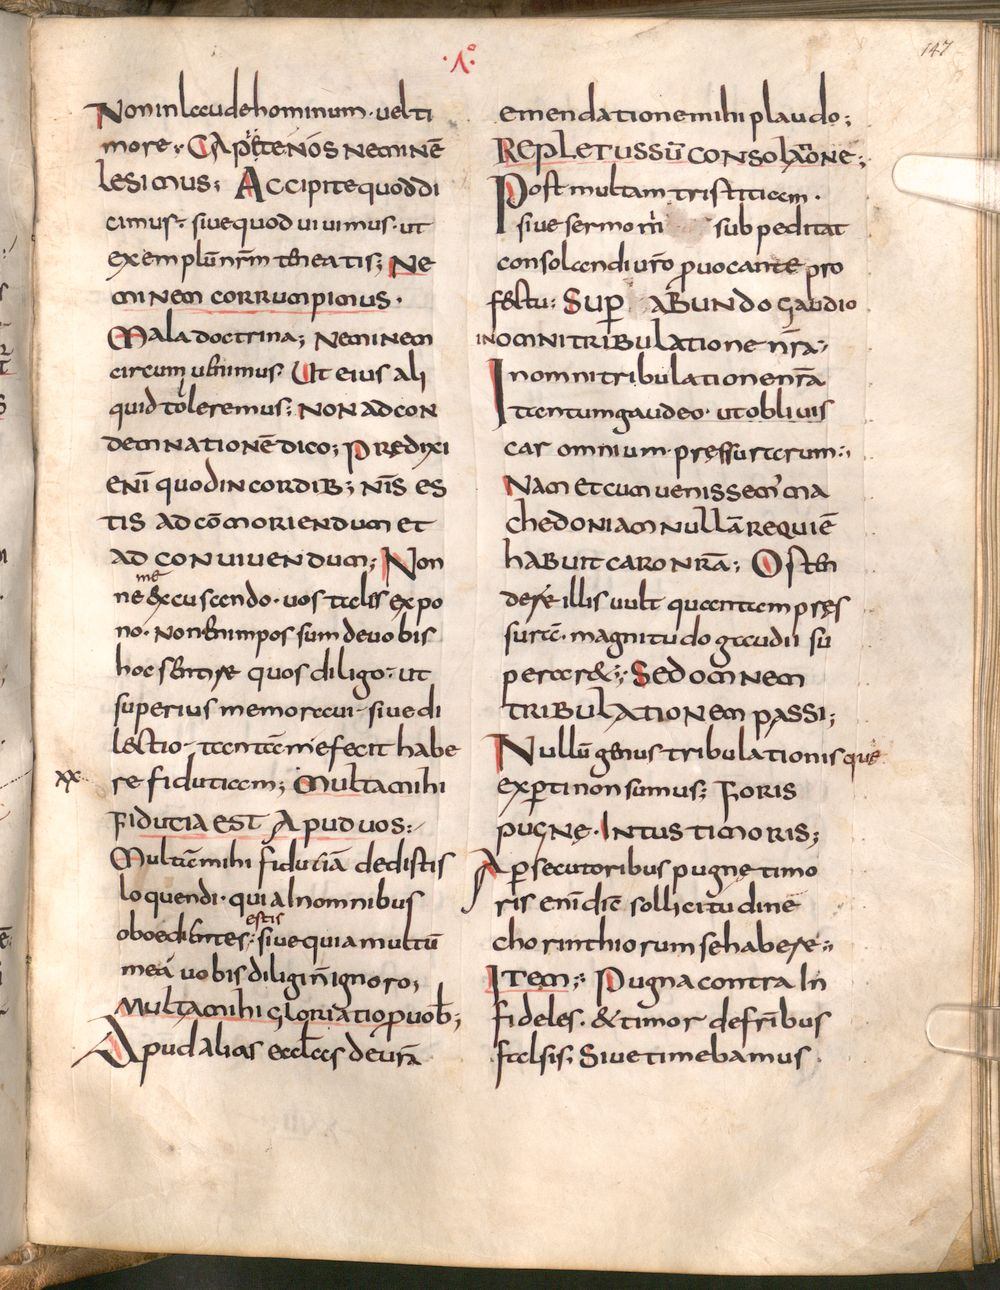 147
Non in laude hominum · vel ti
more ; Capite nōs neminē
lesimus ; Accipite quod di
cimus · sive quod vivimus · ut
exemplū nr̄m teneatis ; Ne
minem corrumpimus ·
Mala doctrina ; neminem
circumvenimus Ut eius ali
quid tolleremus ; non ad con
demnationē dico ; Predixi
enī quod in cordib ; nr̄is es
tis ad cōmoriendum et
ad convivendum ; Non
me
ne excusando · vos tales expo
no · non enim possum de vobis
hoc sentire quos diligo · ut
superius memoravi · sive di
lectio · tantam me fecit habe
xx re fidutiam ; Multa mihi
fidutia est Apud vos :
Multam mihi fiduciā dedistis
loquendi · qui aln omnibus
estis
oboedientes : sive quia multū
mea vobis diligi n̄ ignoro ;
Multa mihi gloriatio p vob ;
Apud alias eccl̄as de vr̄a
emendatione mihi plaudo ;
Repletus sū consolaōne ;
Post multam tristitiam ·
sive sermo m̄ subpeditat
consolandi vr̄o puocante pro
fectu : Sup abundo gaudio
in omni tribulatione nr̄a ;
In omni tribulatione nr̄a
Itantum gaudeo · ut oblivis
car omnium pressurarum :
Nam et cum venissem' ma
chedoniam nullā requiē
habuit caro nr̄a ; Osten
dere illis vult quantam pres
surā · magnitudo gaudii su
perar& ; Sed omnem
tribulationem passi ;
Nullū genus tribulationis que
experti non sumus ; Foris
pugne · Intus timoris ;
A psecutoribus pugne timo
ris enī dr̄e sollicitudinē
chorinthiorum se habere ;
Item ; Pugna contra In
fideles · & timor de frībus
falsis ; Sive timebamus